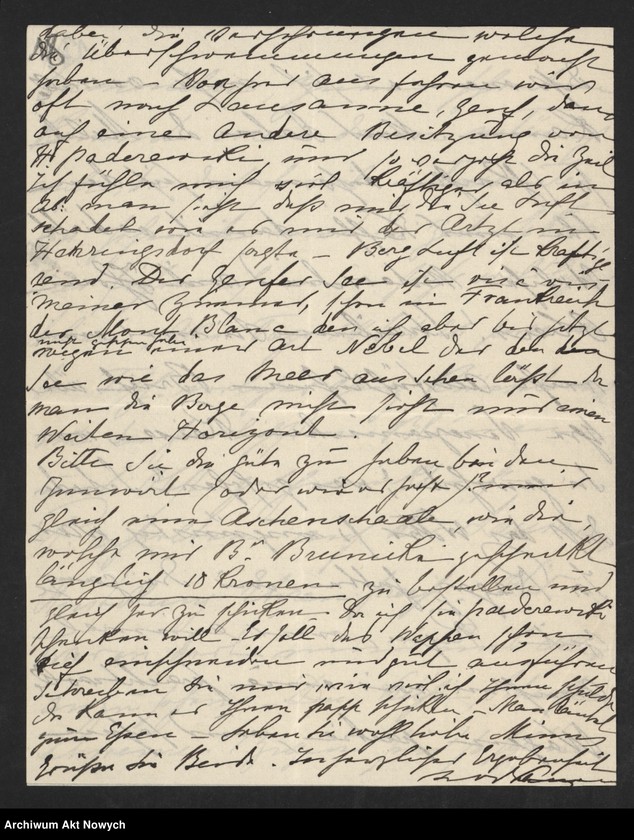 habe die Verheerungen welche
die Überschwemmungen gemacht
haben. Von hier aus fahren wir
oft nach Lausanne, Genf, dann
auf eine andere Besitzung von
H Paderewski, und so vergeht die Zeit
Ich fühle mich viel kräftiger als in
man sieht daß mir die See Luft
schadet wie es mir der Arzt in
Heringsdorf sagte – Berg Luft ist kräftig
end. Der Genfer See ist vis a vis
meiner Zimmer, schon in Frankreich
der Mont Blanc den ich aber bis jetzt
nicht gesehen habe
wegen einer Art Nebel der den
See wie das Meer aussehen läßt da
man die Berge nicht sieht nur einen
weiten Horizont.
Bitte Sie die Güte zu haben bei dem
Juwelier oder wie er heißt
gleich eine Aschenschaale, wie die,
welche mir Br Brunicki geschenkt
länglich 18 Kronen zu bestellen und
gleich her zu schicken Da ich sie Paderewski
schenken will – Er soll das Wappen schön
tief einschneiden und gut ausführen
Schreiben Sie mir wie viel ich Ihnen schulde
Man läutet
zum Essen – Leben Sie wohl liebe Minna
Grüße Sie Beide. In herzlicher Ergebenheit